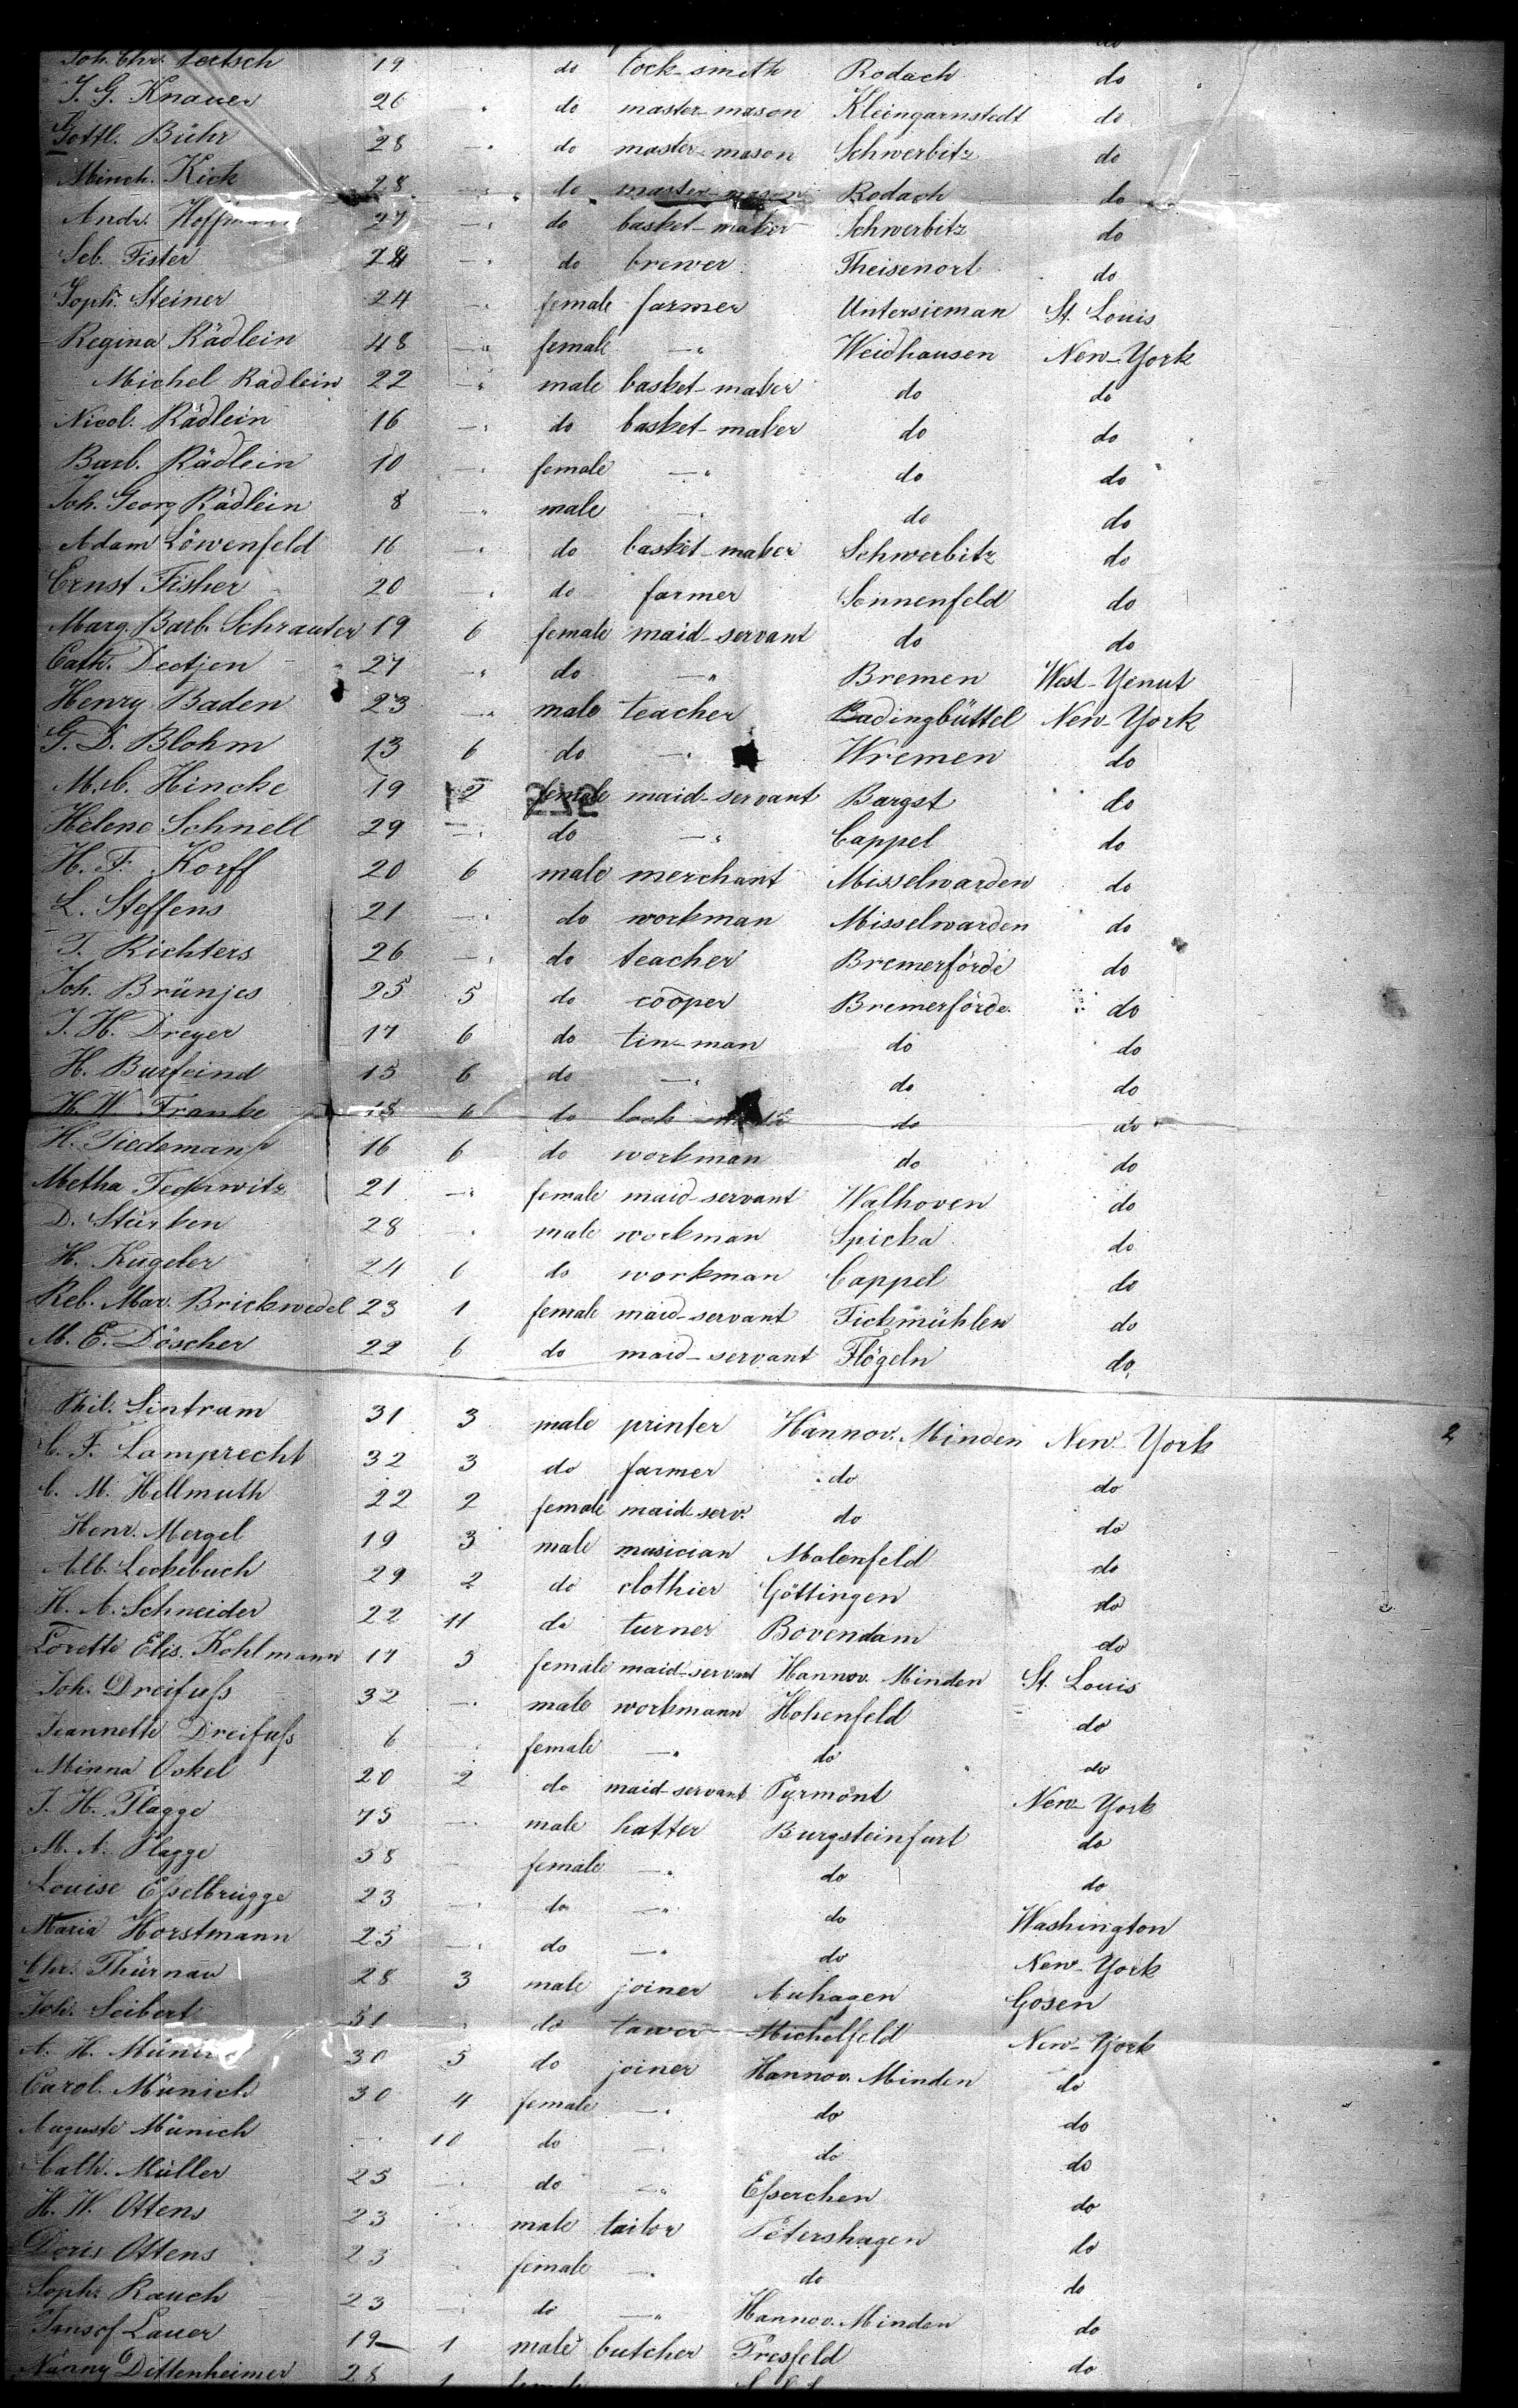 do
Joh. Chr. 19 -" do lock-smith Rodach do
J. G. Knauer 26 -" do master-mason Kleingarnstedt do
Gottl. Bühr 28 -" do master-mason Schwerbitz do
Kick 28 -" do master-mason Rodach do
Andr. Hoffmann 27 -" do basket-maker Schwerbitz do
Seb. Fister -" do brewer Theisenort do
Soph. Steiner 24 -" female farmer Untersieman St. Louis
Regina Rädlein 48 -" female -" Weidhausen New-York
Michel Rädlein 22 -" male basket-maker do do
Nicol. Rädlein 16 -" do basket-maker do do
Barb. Rädlein 10 -" female -" do do
Joh. Georg Rädlein 8 -" male -" do do
Adam Löwenfeld 16 -" do basket-maker Schwerbitz do
Ernst Fisher 20 -" do farmer Sonnenfeld do
Marg. Barb. Schrauter 19 6 female maid-servant do do
Cath. Deetjen 27 -" do -" Bremen West-
Henry Baden 23 -" male teacher Padingbüttel New-York
G. D. Blohm 13 6 do -" Wremen do
M. C. Hincke 19 2 female maid-servant Bargst do
Helene Schnell 29 -" do -" Cappel do
H. F. Korff 20 6 male merchant Misselwarden do
L. Steffens 21 -" do workman Misselwarden do
T. Richters 26 -" do teacher Bremerförde do
Joh. Brünjes 25 5 do cooper Bremerförde do
J. H. Dreyer 17 6 do tin-man do do
H. Burfeind 15 6 do -" do do
H. W. Franke 18 6 do lock do do
H. Tiedemann 16 6 do workman do do
Metha 21 -" female maid-servant Walhoven do
D. Stürken 28 -" male workman Spicka do
H. Kügeler 24 6 do workman Cappel do
Reb. Mar. Brickwedel 23 1 female maid-servant Fickmühlen do
M. E. Döscher 22 6 do maid-servant Flögeln do
Phil. Sintram 31 3 male printer Hannov. Minden New-York 2
C. F. Lamprecht 32 3 do farmer do do
C. M. Hellmuth 22 2 female maid-serv. do do
Henr. Mergel 19 3 male musician Molenfeld do
Alb. Leckebuch 29 2 do clothier Göttingen do
H. A. Schneider 22 11 do turner Bovendam do
Lorette Elis. Kohlmann 17 3 female maid-servant Hannov. Minden St. Louis
Joh. Dreifuſs 32 -" male workmann Hohenfeld do
Jeannette Dreifuſs 6 -" female -" do do
Minna Oskel 20 2 do maid-servant Pyrmont New-York
J. H. Plagge 75 -" male hatter Burgsteinfurt do
M. A. Plagge 58 - female -" do do
Louise Eſselbrügge 23 -" do -" do Washington
Maria Horstmann 25 -" do -" do New-York
Chr. Thürnau 28 3 male joiner Auhagen Gosen
Joh. Seibert 51 -" do tawer Michelfeld New-York
A. H. Münich 30 5 do joiner Hannov. Minden do
Carol. Münich 30 4 female -" do do
Auguste Münich -" 10 do -" do do
Cath. Müller 25 -" do -" Eſserchen do
H. W. Ottens 23 -" male tailor Petershagen do
Doris Ottens 23 -" female -" do do
Soph. Rauch 23 -" do -" Hannov. Minden do
Lauer 19 1 male butcher Fresfeld do
Nanny Dittenheimer 28 1